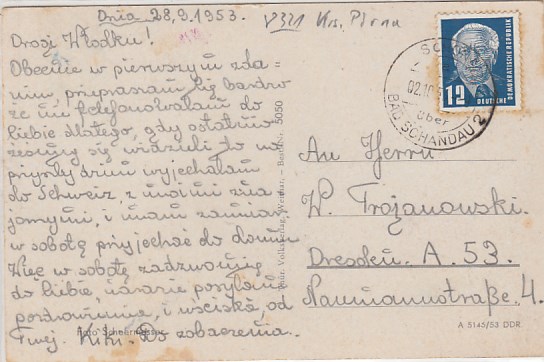 Dnia 28.9.1953.
V321 Krs. Pirna
Drogi Włodku!
Obecnie w pierwszym zda=
niu przepraszam Cię bardzo
że nie telefonowałam do
Ciebie dlatego, gdy ostatnio
żeśmy się widzieli to na
przyszły dzień wyjechałam
do Schweiz, z moimi zna
jomymi, i mam zamiar
w sobotę przyjechać do domu
Więc w sobotę zadzwonię
do Ciebie, narazie posyłam
pozdrowienia, i uściska, od
Twej. Kiki. Do zobaczenia.
12
DEUTSCHE
DEMOKRATISCHE REPUBLIK
02.10.
über
BAD SCHANDAU 2
An Herrn
W. Trojanowski.
Dresden. A. 53.
Naumannstraße 4.
A 5145/53 DDR